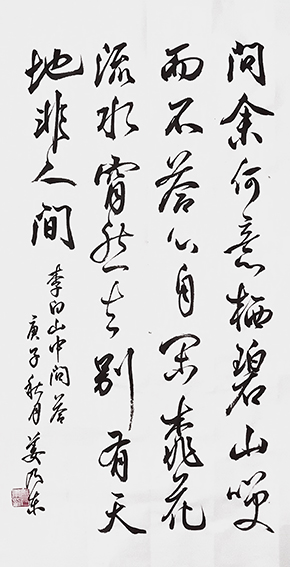 问余何意栖碧山笑
而不答心自闲桃花
流水窅然去别有天
地非人间
李白山中问答
庚子秋月姜乃东